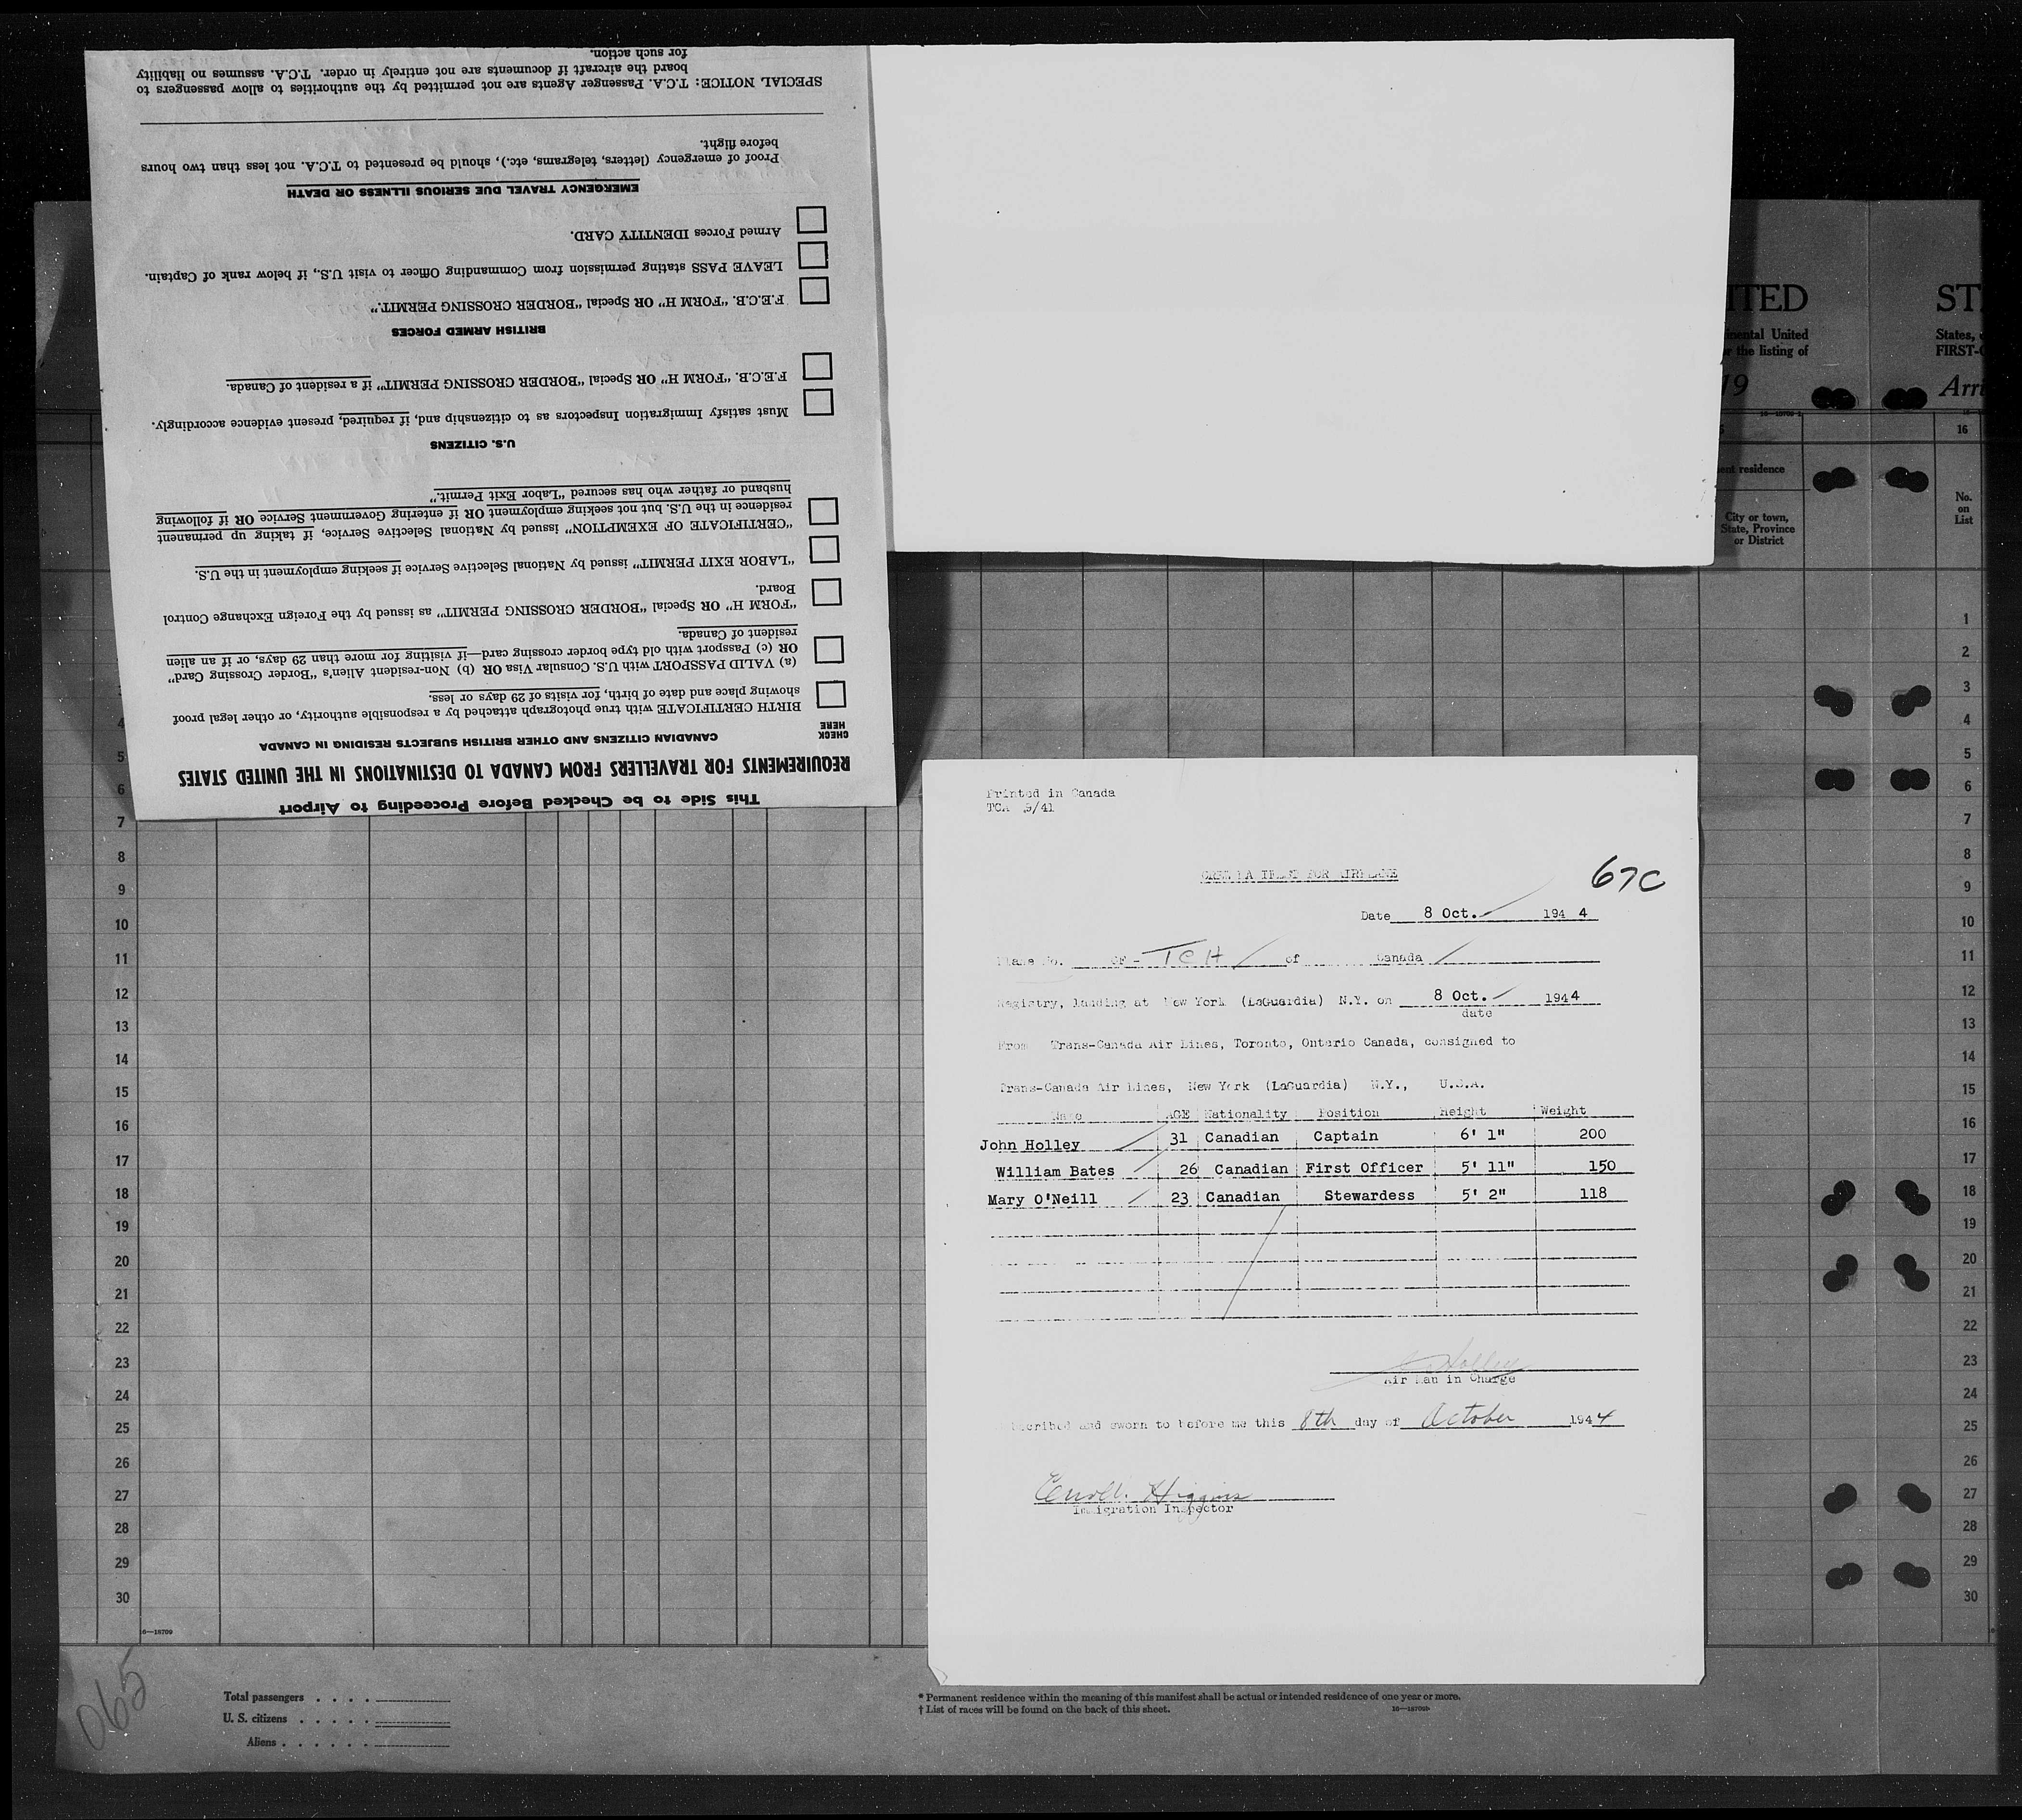 This Side to be Checked Before Proceeding to Airport
REQUIREMENTS FOR TRAVELLERS FROM CANADA TO DESTINATIONS IN THE UNITED STATES
CHECK HERE
CANADIAN CITIZENS AND OTHER BRITISH SUBJECTS RESIDING IN CANADA
BIRTH CERTIFICATE with true photograph attached by a responsible authority, or other legal proof
showing place and date of birth, for visits of 29 days or less.
(a) VALID PASSPORT with U.S. Consular Visa OR (b) Non-resident Alien's "Border Crossing Card"
OR (c) Passport with old type border crossing card—if visiting for more than 29 days, or if an alien
resident of Canada.
"FORM H" OR Special "BORDER CROSSING PERMIT" as issued by the Foreign Exchange Control
Board.
"LABOR EXIT PERMIT" issued by National Selective Service if seeking employment in the U.S.
"CERTIFICATE OF EXEMPTION" issued by National Selective Service, if taking up permanent
residence in the U.S. but not seeking employment OR if entering Government Service OR if following
husband or father who has secured "Labor Exit Permit."
U.S. CITIZENS
Must satisfy Immigration Inspectors as to citizenship and, if required, present evidence accordingly.
F.E.C.B. "FORM H" OR Special "BORDER CROSSING PERMIT" if a resident of Canada.
BRITISH ARMED FORCES
F.E.C.B. "FORM H" OR Special "BORDER CROSSING PERMIT."
LEAVE PASS stating permission from Commanding Officer to visit U.S., if below rank of Captain.
Armed Forces IDENTITY CARD.
EMERGENCY TRAVEL DUE SERIOUS ILLNESS OR DEATH
Proof of emergency (letters, telegrams, etc.), should be presented to T.C.A. not less than two hours
before flight.
SPECIAL NOTICE: T.C.A. Passenger Agents are not permitted by the authorities to allow passengers to
board the aircraft if documents are not entirely in order. T.C.A. assumes no liability
for such action.
ITED
inental United
r the listing of
19
ent residence
City or town,
State, Province
or District
ST
States,
FIRST-
Arri
16
No.
on
List
Printed in Canada
TCA 9/41
67C
FOR AIRPLANE
Date 8 Oct. 194 4
Plane No. CF - TCH of Canada
Registry, landing at New York (LaGuardia) N.Y. on 8 Oct. 1944
date
From Trans-Canada Air Lines, Toronto, Ontario Canada, consigned to
Trans-Canada Air Lines, New York (LaGuardia) N.Y., U.S.A.
Name AGE Nationality Position Height Weight
John Holley 31 Canadian Captain 6' 1" 200
William Bates 26 Canadian First Officer 5' 11" 150
Mary O'Neill 23 Canadian Stewardess 5' 2" 118
Holley
Air Man in Charge
scribed and sworn to before me this 8th day of October 1944
Higgins
Immigration Inspector
4
5
6
7
8
9
10
11
12
13
14
15
16
17
18
19
20
21
22
23
24
25
26
27
28
29
30
1
2
3
4
5
6
7
8
9
10
11
12
13
14
15
16
17
18
19
20
21
22
23
24
25
26
27
28
29
30
16—18709
065
Total passengers . . . .
U. S. citizens . . . . .
Aliens . . . . . .
* Permanent residence within the meaning of this manifest shall be actual or intended residence of one year or more.
† List of races will be found on the back of this sheet.